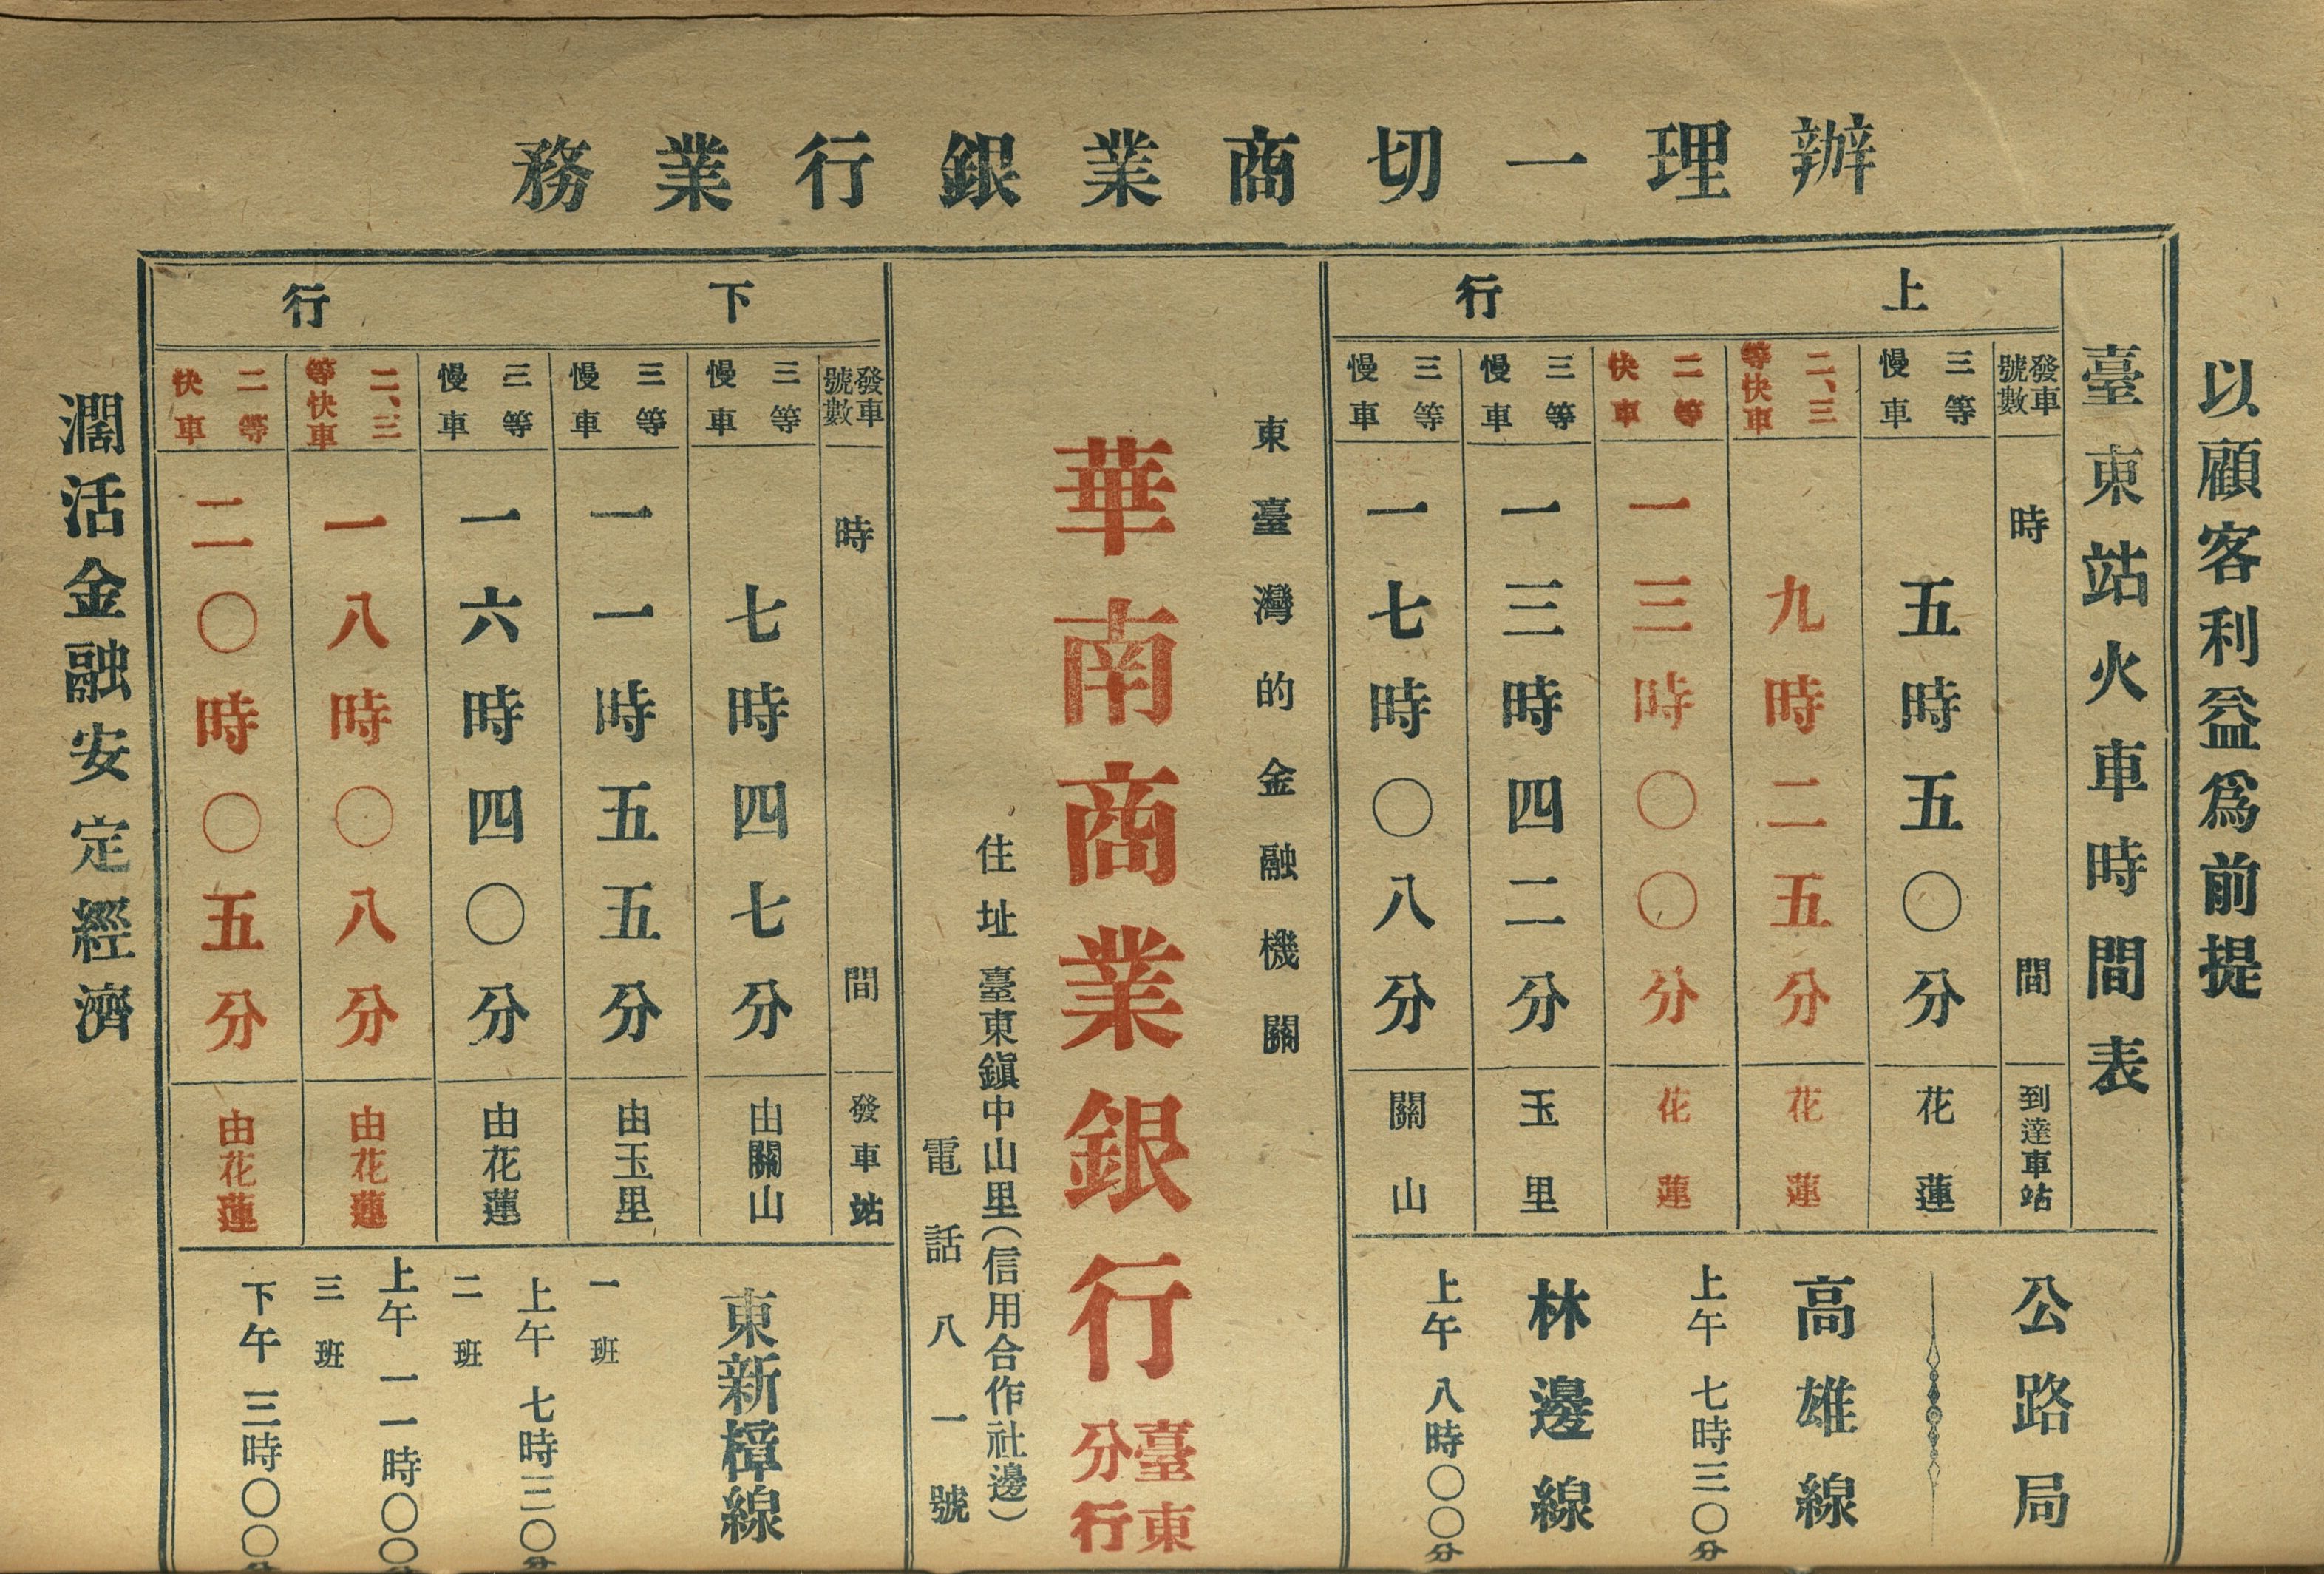 辦理一切商業銀行業務
以顧客利益爲前提
臺東站火車時間表
上行
發車號數 時間 到達車站
三等慢車 五時五〇分 花蓮
二、三等快車 九時二五分 花蓮
二等快車 一三時〇〇分 花蓮
三等慢車 一三時四二分 玉里
三等慢車 一七時〇八分 關山
公路局
高雄線
上午七時三〇分
林邊線
上午八時〇〇分
東臺灣的金融機關
華南商業銀行臺東分行
住址 臺東鎮中山里(信用合作社邊)
電話八一號
下行
發車號數 時間 發車站
三等慢車 七時四七分 由關山
三等慢車 一一時五五分 由玉里
三等慢車 一六時四〇分 由花蓮
二、三等快車 一八時〇八分 由花蓮
二等快車 二〇時〇五分 由花蓮
東新樟線
一班
上午七時三〇分
二班
上午一一時〇〇分
三班
下午三時〇〇分
濶活金融安定經濟